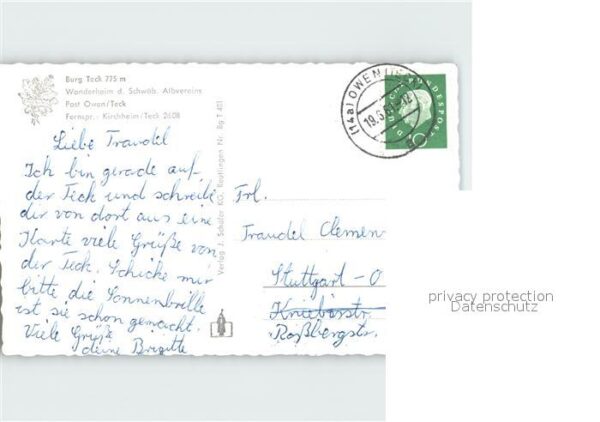 Burg Teck 775 m
Wanderheim d. Schwäb. Albvereins
Post Owen/Teck
Fernspr.: Kirchheim/Teck 2608
Liebe Traudel
Ich bin gerade auf
der Teck und schreibe
dir von dort aus eine
Karte viele Grüße von
der Teck. Schicke mir
bitte die Sonnenbrille
ist sie schon gemacht.
Viele Grüße
deine Brigitte
Verlag J. Schäfer KG. Reutlingen Nr. Bg T 401
(14a) OWEN
19.6.
DEUTSCHE BUNDESPOST
10
Frl.
Traudel Clemen
Stuttgart - O
Kniebisstr.
Roßbergstr.
privacy protection
Datenschutz